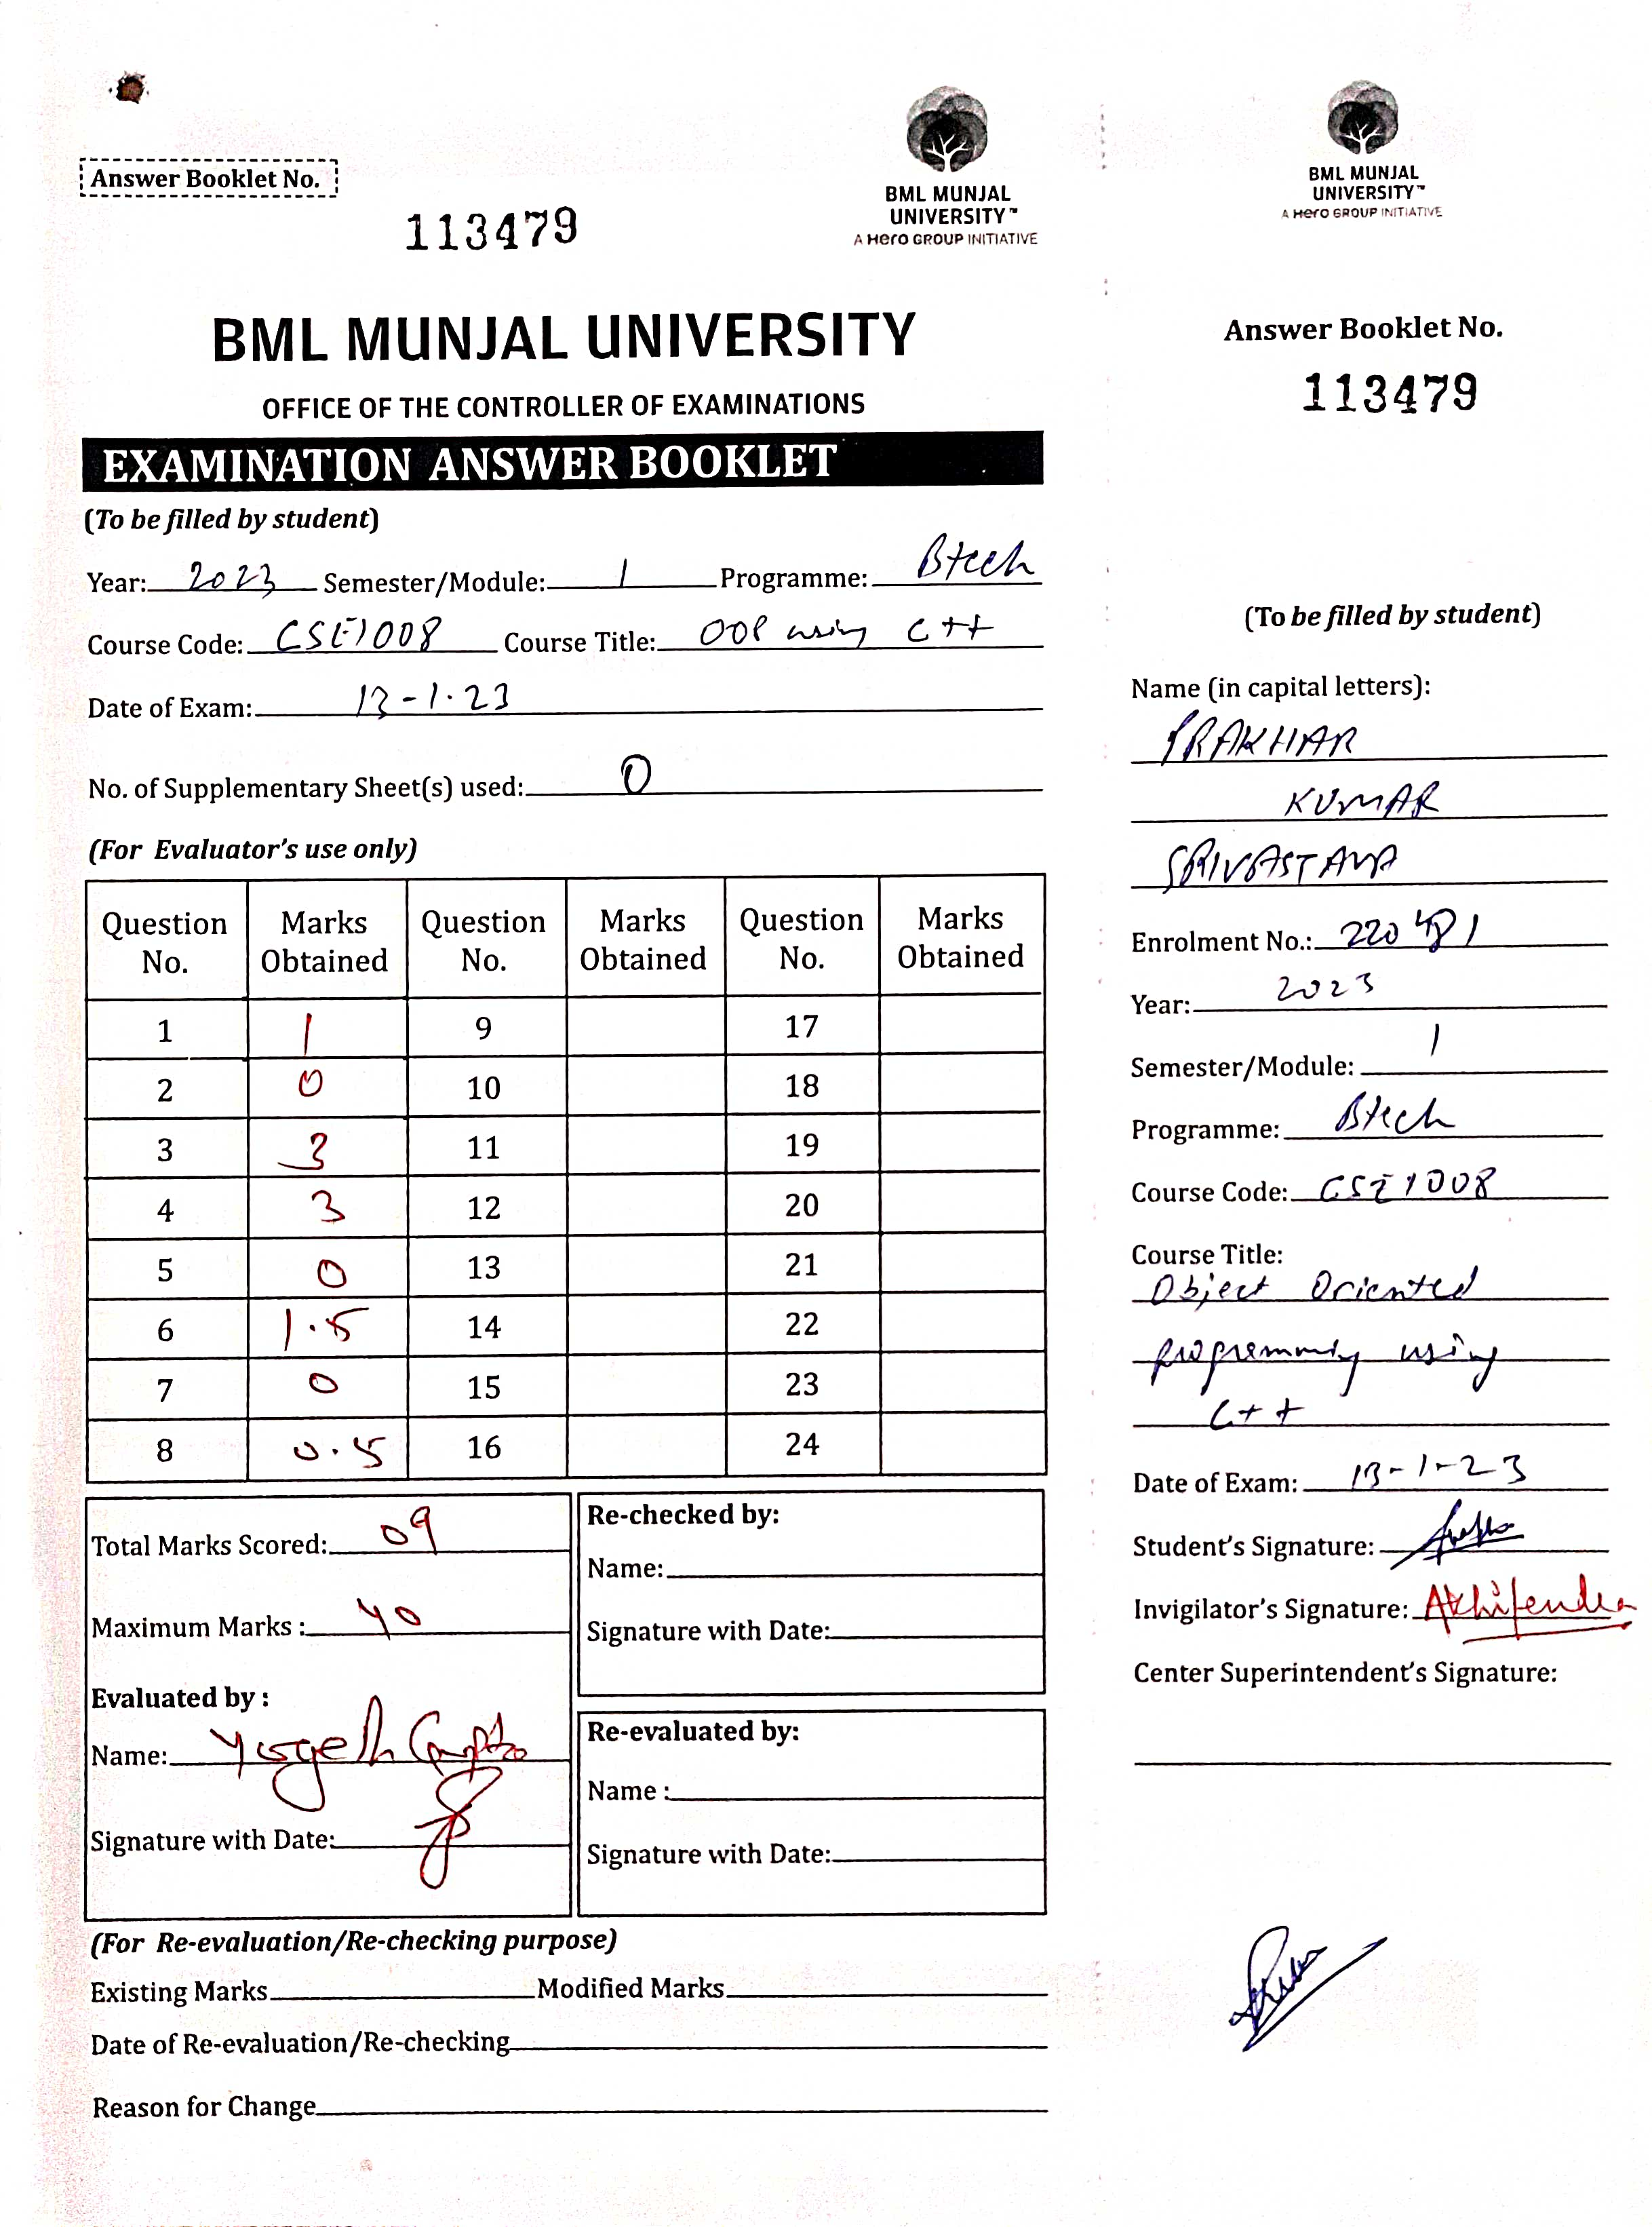 Answer Booklet No.
113479
BML MUNJAL
UNIVERSITY™
A Hero GROUP INITIATIVE
BML MUNJAL UNIVERSITY
OFFICE OF THE CONTROLLER OF EXAMINATIONS
EXAMINATION ANSWER BOOKLET
(To be filled by student)
Year: 2023 Semester/Module: 1 Programme: Btech
Course Code: CSE1008 Course Title: OOP using C++
Date of Exam: 13-1.23
No. of Supplementary Sheet(s) used: 0
(For Evaluator's use only)
Question No. Marks Obtained Question No. Marks Obtained Question No. Marks Obtained
1 1 9 17
2 0 10 18
3 3 11 19
4 3 12 20
5 0 13 21
6 1.5 14 22
7 0 15 23
8 0.5 16 24
Total Marks Scored: 09
Maximum Marks : 40
Evaluated by :
Name: Yogesh Gupta
Signature with Date:
Re-checked by:
Name:
Signature with Date:
Re-evaluated by:
Name :
Signature with Date:
(For Re-evaluation/Re-checking purpose)
Existing Marks Modified Marks
Date of Re-evaluation/Re-checking
Reason for Change
BML MUNJAL
UNIVERSITY™
A Hero GROUP INITIATIVE
Answer Booklet No.
113479
(To be filled by student)
Name (in capital letters):
PRAKHAR
KUMAR
SRIVASTAVA
Enrolment No.: 220481
Year: 2023
Semester/Module: 1
Programme: Btech
Course Code: CSE1008
Course Title:
Object Oriented
programming using
C++
Date of Exam: 13-1-23
Student's Signature:
Invigilator's Signature:
Center Superintendent's Signature: